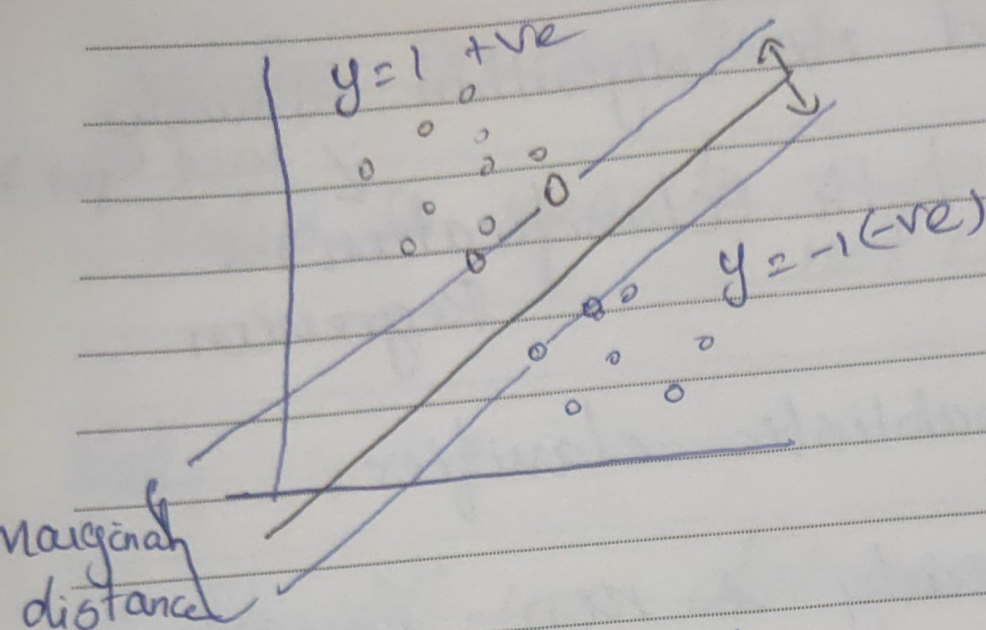 y=1 +ve
y=-1(-ve)
Marginal
distance